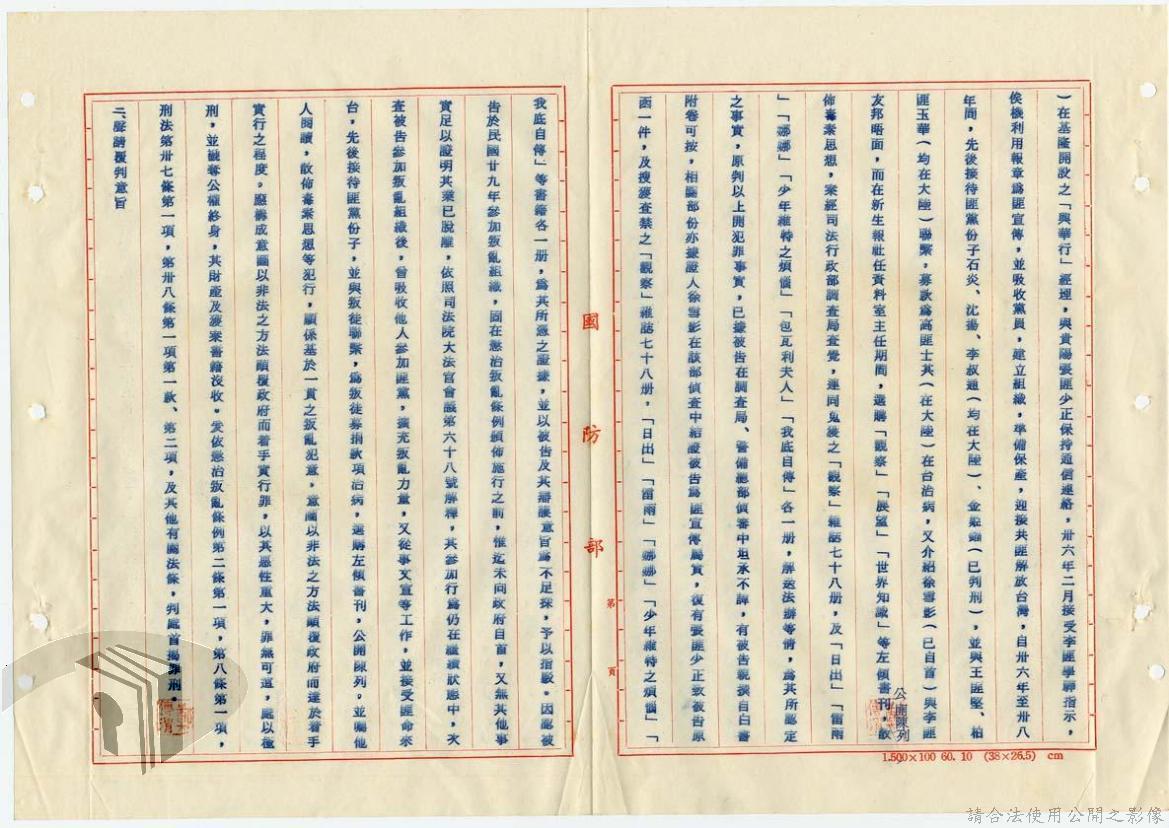 ）在基隆開設之「興華行」經理，與貴陽張匪少正保持通信連絡，卅六年二月接受李匪學驊指示，
俟機利用報章為匪宣傳，並吸收黨員，建立組織，準備保產，迎接共匪解放台灣，自卅六年至卅八
年間，先後接待匪黨份子石炎、沈揚、李叔通（均在大陸）、金（已判刑），並與王匪堅、柏
匪玉華（均在大陸）聯繫，募款為高匪士其（在大陸）在台治病，又介紹徐雪影（已自首）與李匪
友邦晤面，而在新生報社任資料室主任期間，選購「觀察」「展望」「世界知識」等左傾書刊，公開陳列，散
佈毒素思想，案經司法行政部調查局查覺，連同鬼獲之「觀察」雜誌七十八册，及「日出」「雷雨
」「娜娜」「少年維特之煩惱」「包瓦利夫人」「我底自傳」各一册，解送法辦等情，為其所認定
之事實，原判以上開犯罪事實，已據被告在調查局、警備總部偵審中坦承不諱，有被告親撰自白書
附卷可按，相關部份亦據證人徐雪影在該部偵查中結證被告為匪宣傳屬實，復有張匪少正致被告原
函一件，及搜獲查禁之「觀察」雜誌七十八册，「日出」「雷雨」「娜娜」「少年維特之煩惱」「
我底自傳」等書籍各一册，為其所憑之證據，並以被告及其辯護意旨為不足採，予以指駁。因認被
告於民國廿九年參加叛亂組織，固在懲治叛亂條例頒佈施行之前，惟迄未向政府自首，又無其他事
實足以證明其業已脫離，依照司法院大法官會議第六十八號解釋，其參加行為仍在繼續狀態中，次
查被告參加叛亂組織後，曾吸收他人參加匪黨，擴充叛亂力量，又從事文宣等工作，並接受匪命來
台，先後接待匪黨份子，並與叛徒聯繫，為叛徒募捐款項治病，選購左傾書刊，公開陳列。並囑他
人閱讀，散佈毒素思想等犯行，顯係基於一貫之叛亂犯意，意圖以非法之方法顛覆政府而達於着手
實行之程度。應構成意圖以非法之方法顛覆政府而着手實行罪，以其惡性重大，罪無可逭，處以極
刑，並褫奪公權終身，其財產及獲案書籍沒收。爰依懲治叛亂條例第二條第一項，第八條第一項，
刑法第卅七條第一項，第卅八條第一項第一款、第二項，及其他有關法條，判處首揭罪刑。
二、聲請覆判意旨
國防部
第　頁
1.500×100 60. 10 (38×26.5) cm
請合法使用公開之影像